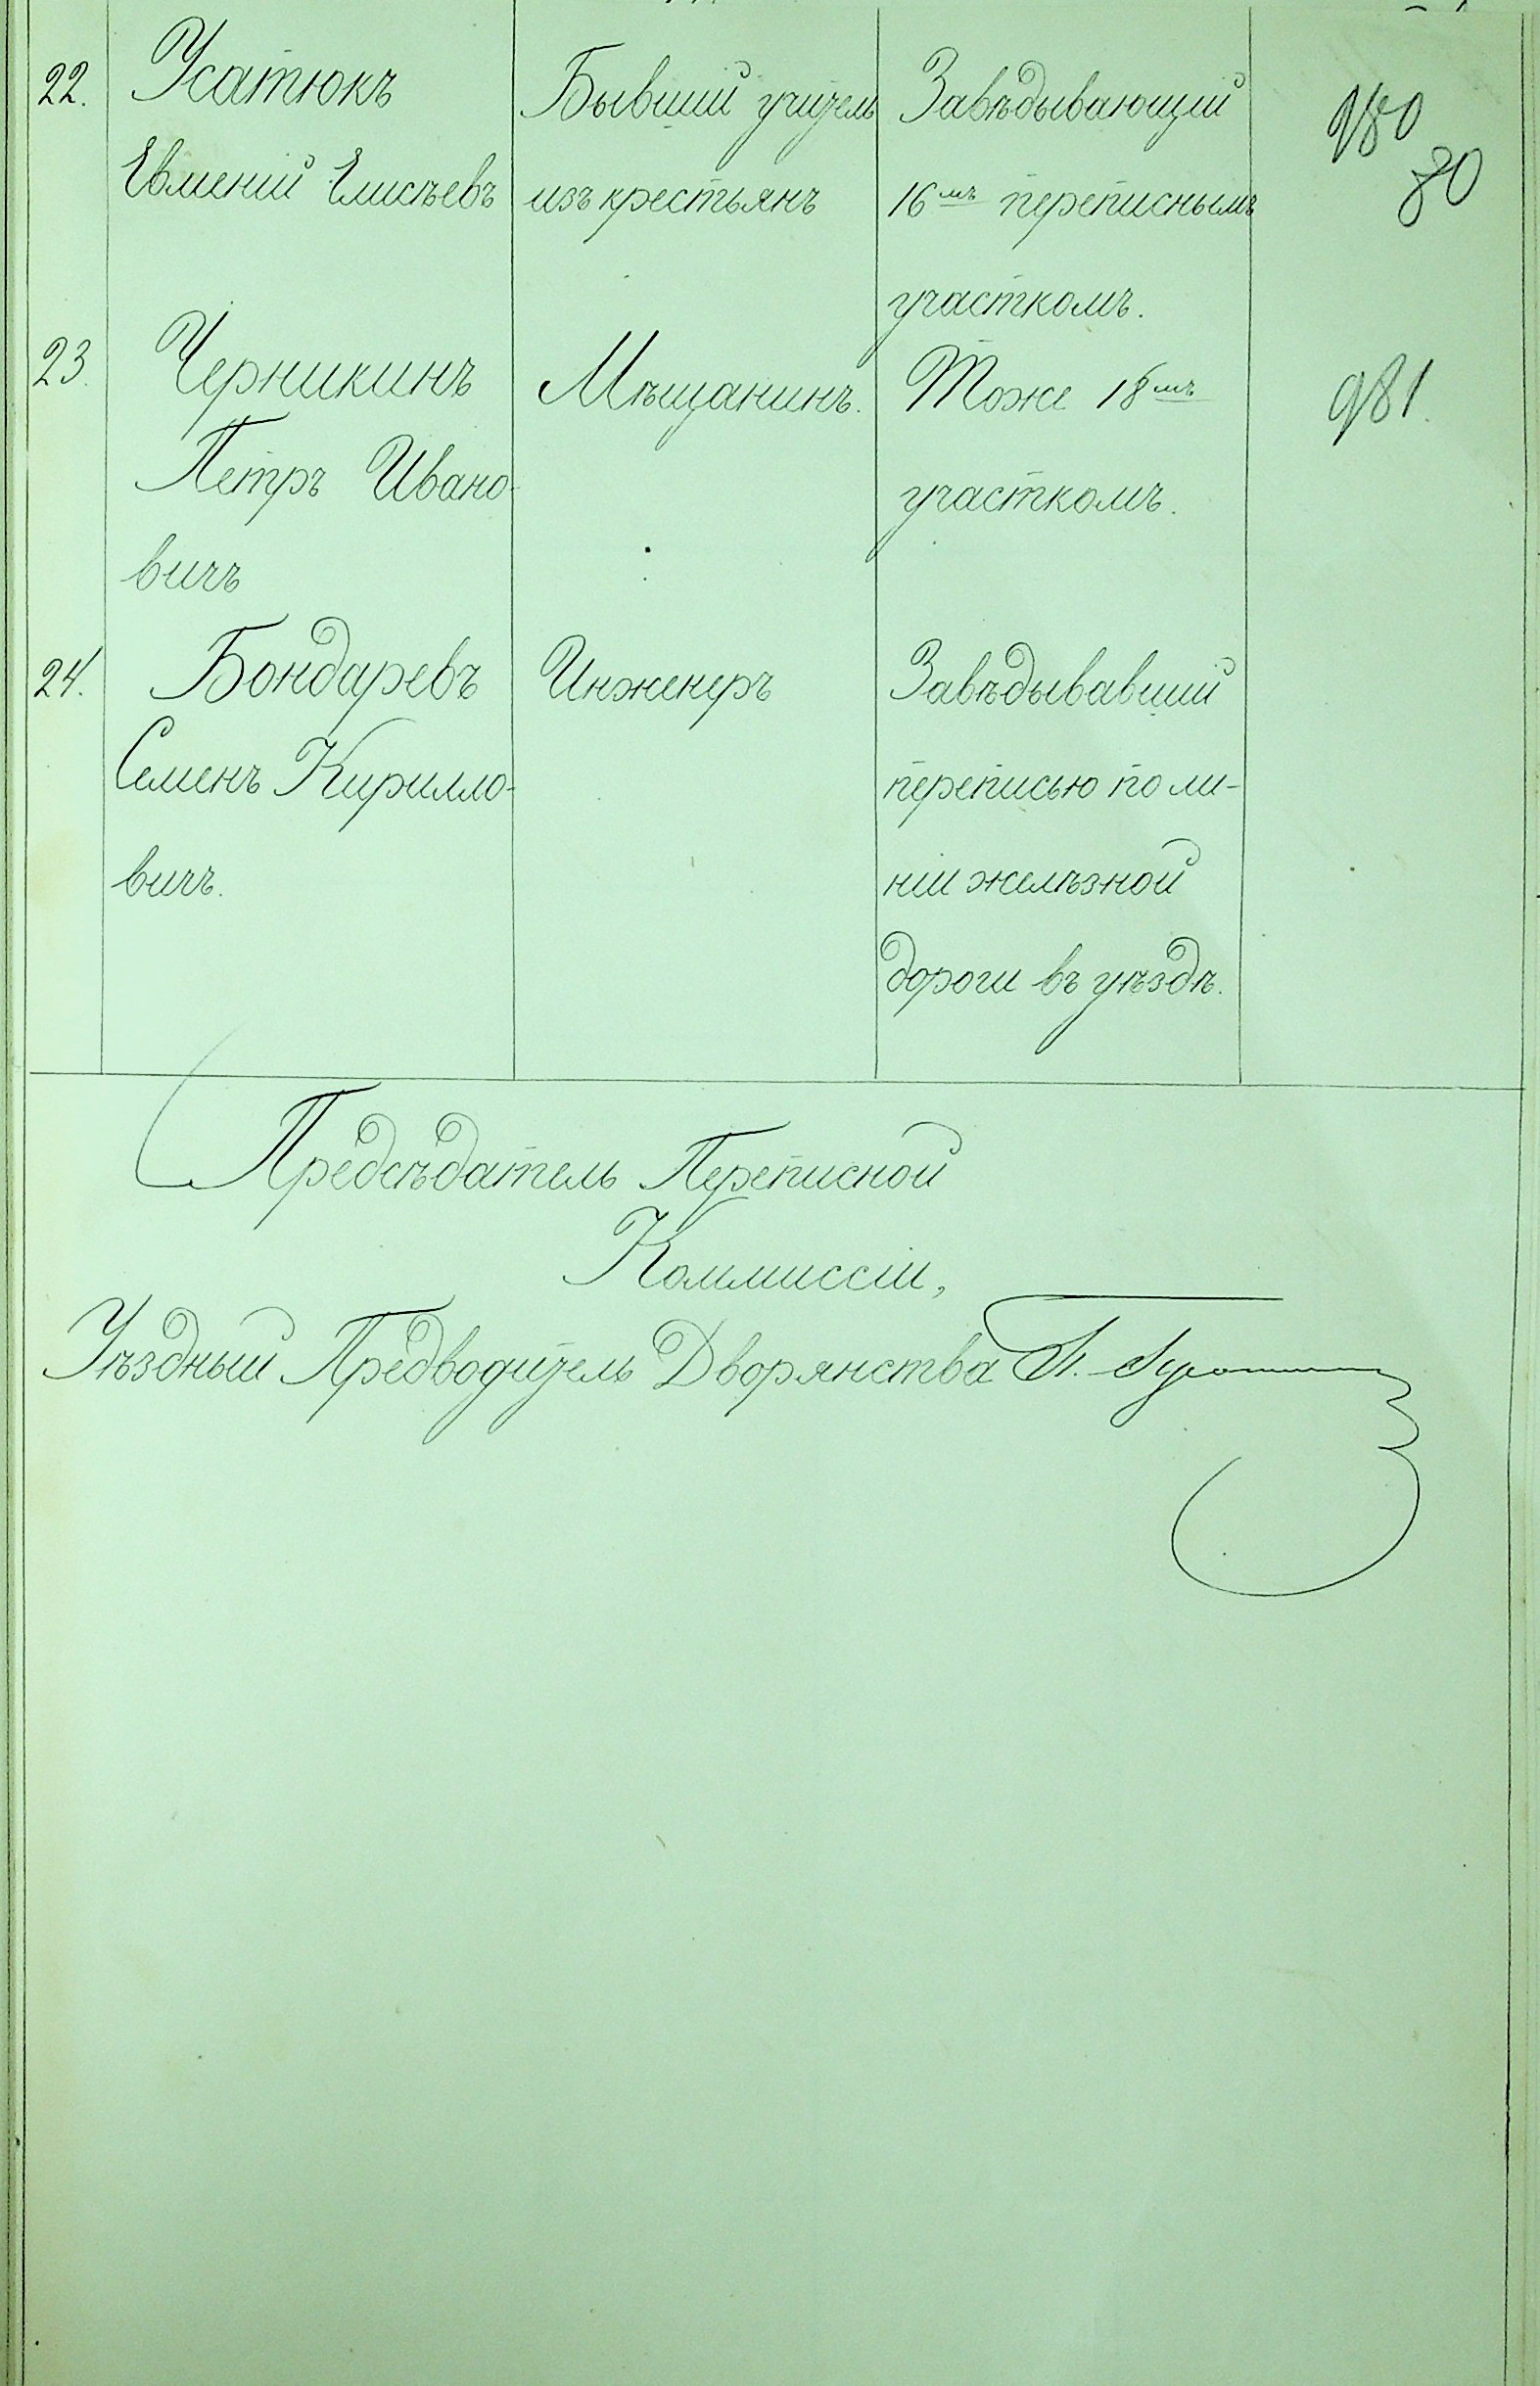 22. Усатюкъ
Евмений Елисѣевъ
Бывший учитель
изъ крестьянъ
Завѣдывающий
16мъ переписнымъ
участкомъ.
980
80
23. Черникинъ
Петръ Ивано-
вичъ
Мѣщанинъ.
Тоже 18мъ
участкомъ.
981.
24. Бондаревъ
Семенъ Кирилло-
вичъ.
Инженеръ
Завѣдывавший
переписью по ли-
ніи желѣзной
дороги въ уѣздѣ.
Предсѣдатель Переписной
Коммиссіи,
Уѣздный Предводитель Дворянства П.